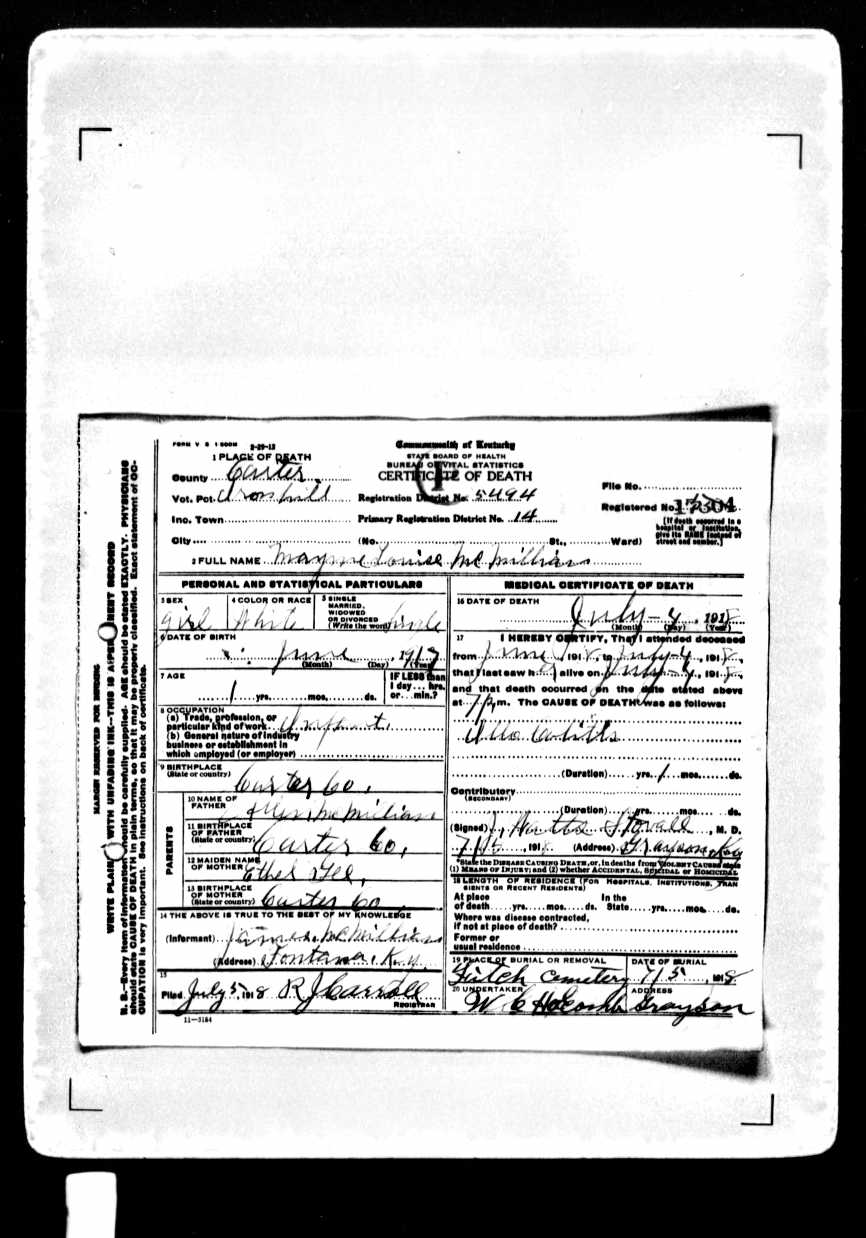 FORM V S 1-500M 2-29-12
Commonwealth of Kentucky
STATE BOARD OF HEALTH
BUREAU OF VITAL STATISTICS
CERTIFICATE OF DEATH
1 PLACE OF DEATH
County Carter
Vot. Pct. Ironhill
Registration District No. 5494
Inc. Town
Primary Registration District No. 14
City (No. St., Ward)
File No.
Registered No. 17304
[If death occurred in a hospital or institution, give its NAME instead of street and number.]
2 FULL NAME Mayme Louise McMillian
PERSONAL AND STATISTICAL PARTICULARS
3 SEX
girl
4 COLOR OR RACE
White
5 SINGLE
MARRIED,
WIDOWED
OR DIVORCED
(Write the word) single
6 DATE OF BIRTH
June, 1917
(Month) (Day) (Year)
7 AGE
1 yrs. mos. ds.
IF LESS than
1 day... hrs.
or... min.?
8 OCCUPATION
(a) Trade, profession, or
particular kind of work Infant
(b) General nature of industry
business or establishment in
which employed (or employer)
9 BIRTHPLACE
(State or country)
Carter Co,
PARENTS
10 NAME OF
FATHER
McMillian
11 BIRTHPLACE
OF FATHER
(State or country)
Carter Co,
12 MAIDEN NAME
OF MOTHER
Ethel Gee,
13 BIRTHPLACE
OF MOTHER
(State or country)
Carter Co
14 THE ABOVE IS TRUE TO THE BEST OF MY KNOWLEDGE
(Informant) James McMillian
(Address) Fontana, Ky.
15
Filed July 5, 1918 R J Carroll
REGISTRAR
11-3184
MEDICAL CERTIFICATE OF DEATH
16 DATE OF DEATH
July - 4, 1918
(Month) (Day) (Year)
17 I HEREBY CERTIFY, That I attended deceased
from June 1 1918, to July-4, 1918,
that I last saw h alive on July 4, 1918,
and that death occurred on the date stated above
at m. The CAUSE OF DEATH was as follows:
Illo Colitis
(Duration) yrs. 1 mos. ds.
Contributory
(SECONDARY)
(Duration) yrs. mos. ds.
(Signed) J, Watts Stovall, M. D.
7/5, 1918 (Address) Grayson, Ky
*State the DISEASE CAUSING DEATH, or, in deaths from VIOLENT CAUSES state
(1) MEANS OF INJURY; and (2) whether ACCIDENTAL, SUICIDAL or HOMICIDAL
18 LENGTH OF RESIDENCE (FOR HOSPITALS, INSTITUTIONS, TRANSIENTS OR RECENT RESIDENTS)
At place
of death yrs. mos. ds.
In the
State yrs. mos. ds.
Where was disease contracted,
if not at place of death?
Former or
usual residence
19 PLACE OF BURIAL OR REMOVAL
Fitch Cemetery
DATE OF BURIAL
7/5, 1918
20 UNDERTAKER
W. C HolComb
ADDRESS
Grayson
MARGIN RESERVED FOR BINDING
WRITE PLAINLY WITH UNFADING INK—THIS IS A PERMANENT RECORD
N. B.—Every item of information should be carefully supplied. AGE should be stated EXACTLY. PHYSICIANS
should state CAUSE OF DEATH in plain terms, so that it may be properly classified. Exact statement of OC-
CUPATION is very important. See instructions on back of certificate.